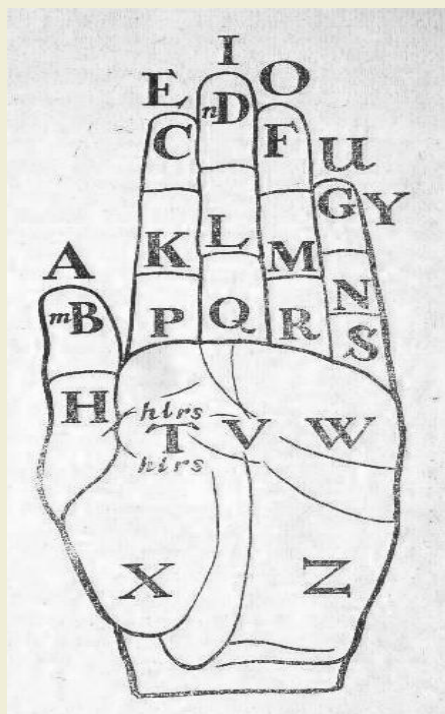 I
E O
nD
C F U
G Y
L
K M
A N
mB P Q R S
H hlrs
T V W
hlrs
X Z